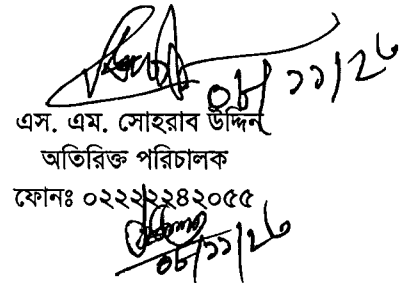 ০৮/১১/২৩
এস. এম. সোহরাব উদ্দিন
অতিরিক্ত পরিচালক
ফোনঃ ০২২২২২৪২০৫৫
০৮/১১/২৩